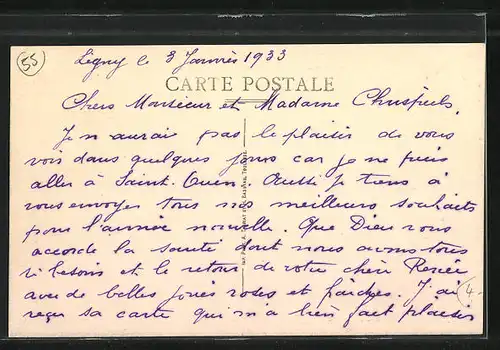 55
Ligny le 3 Janvier 1933
CARTE POSTALE
Chers Monsieur et Madame
Je n aurai pas le plaisir de vous
voir dans quelques jours car je ne puis
aller à Saint. Ouen. Aussi je tiens à
vous envoyer tous nos meilleurs souhaits
pour l'année nouvelle. Que Dieu vous
accorde la santé dont nous avons tous
si besoin et le retour de votre chère Renée
avec de belles joues roses et fraîches. J'ai
reçu sa carte qui m'a bien fait plaisir
4